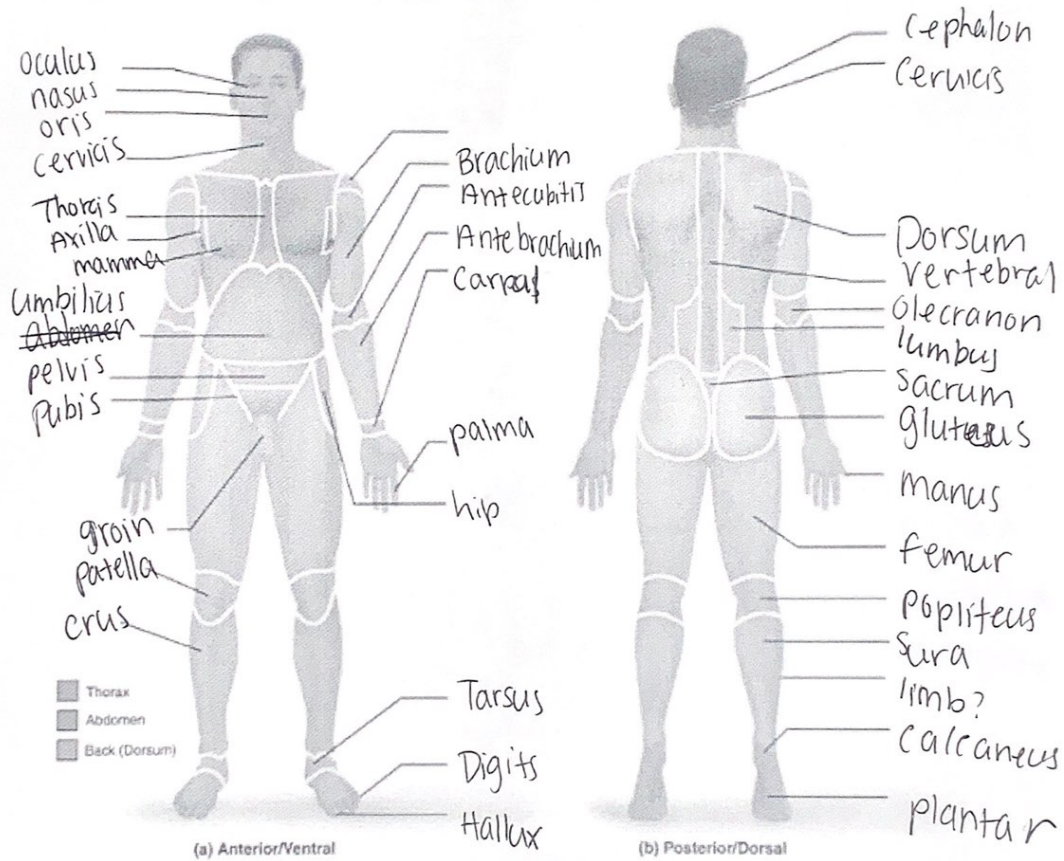 oculus
nasus
oris
cervicis
Thorcis
Axilla
mamma
umbilius
abdomen
pelvis
Pubis
groin
patella
crus
Thorax
Abdomen
Back (Dorsum)
Brachium
Antecubitis
Antebrachium
Carpal
palma
hip
Tarsus
Digits
Hallux
(a) Anterior/Ventral
cephalon
cervicis
Dorsum
vertebral
olecranon
lumbus
sacrum
gluteus
manus
femur
popliteus
sura
limb?
calcaneus
plantar
(b) Posterior/Dorsal